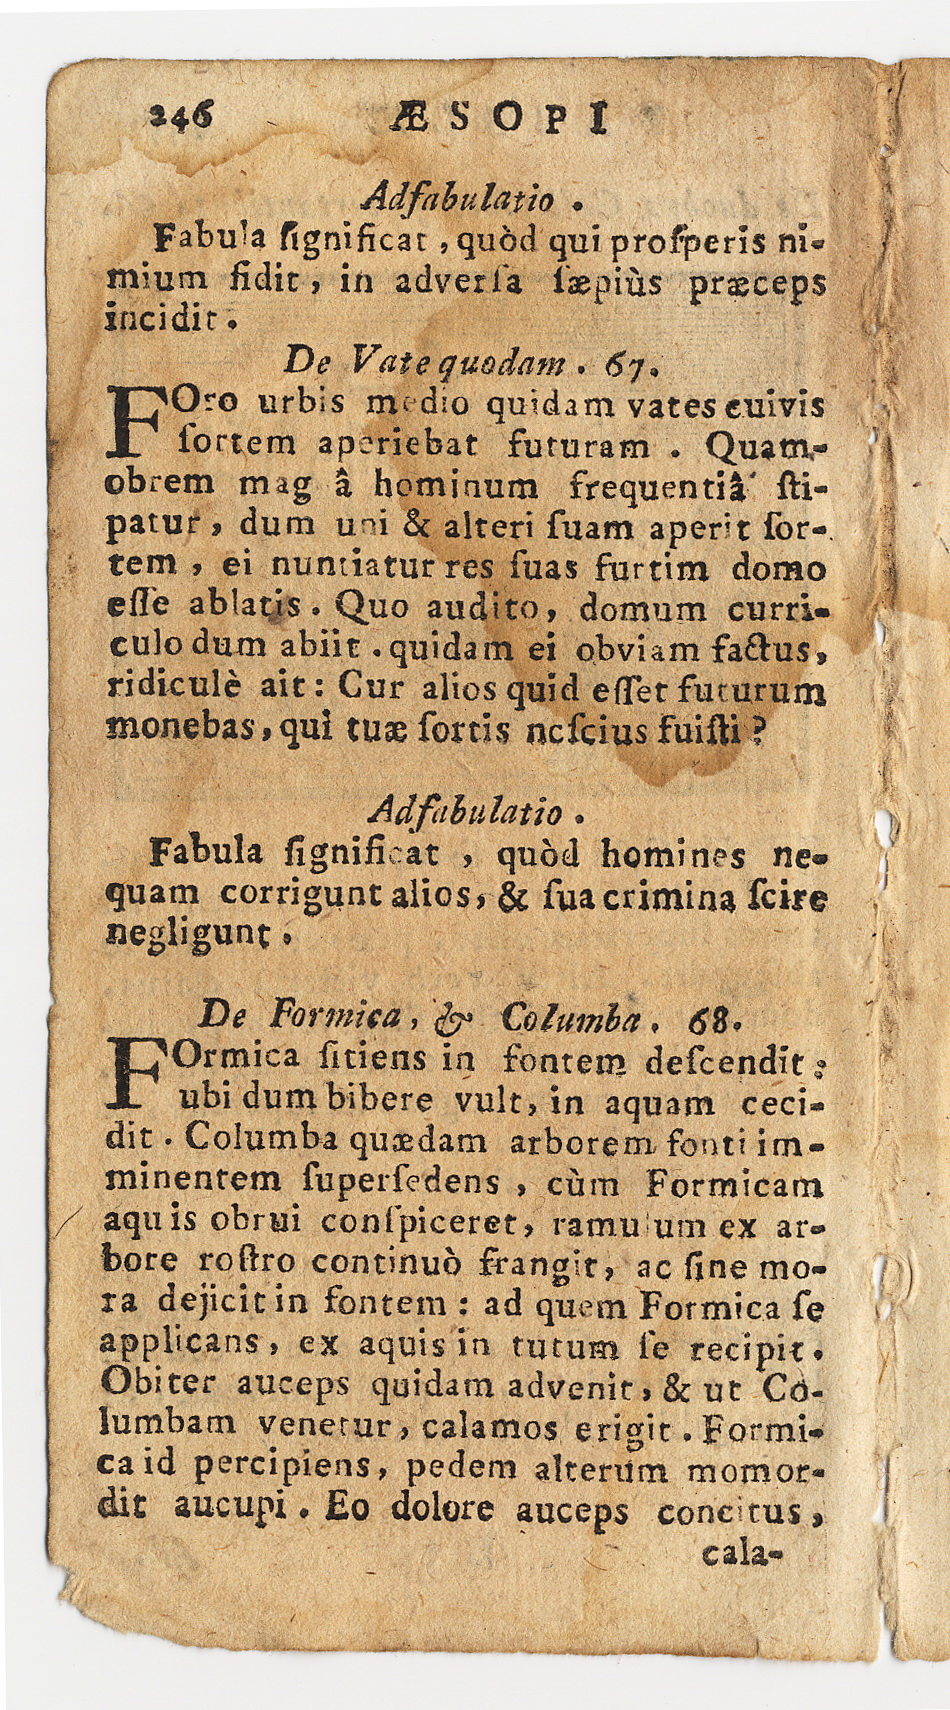 246 ÆSOPI
Adfabulatio .
Fabula ſignificat , quòd qui proſperis ni-
mium fidit , in adverſa ſæpiùs præceps
incidit .
De Vate quodam . 67.
FOro urbis medio quidam vates cuivis
ſortem aperiebat futuram . Quam-
obrem mag â hominum frequentiâ ſti-
patur , dum uni & alteri ſuam aperit ſor-
tem , ei nuntiatur res ſuas furtim domo
eſſe ablatis . Quo audito, domum curri-
culo dum abiit . quidam ei obviam factus,
ridiculè ait : Cur alios quid eſſet futurum
monebas, qui tuæ ſortis neſcius fuiſti ?
Adfabulatio .
Fabula ſignificat , quòd homines ne-
quam corrigunt alios, & ſua crimina ſcire
negligunt .
De Formica , & Columba . 68.
FOrmica ſitiens in fontem deſcendit :
ubi dum bibere vult, in aquam ceci-
dit . Columba quædam arborem fonti im-
minentem ſuperſedens , cùm Formicam
aquis obrui conſpiceret, ramulum ex ar-
bore roſtro continuò frangit, ac ſine mo-
ra dejicit in fontem : ad quem Formica ſe
applicans , ex aquis in tutum ſe recipit .
Obiter auceps quidam advenit, & ut Co-
lumbam venetur, calamos erigit . Formi-
ca id percipiens, pedem alterum momor-
dit aucupi . Eo dolore auceps concitus ,
cala-